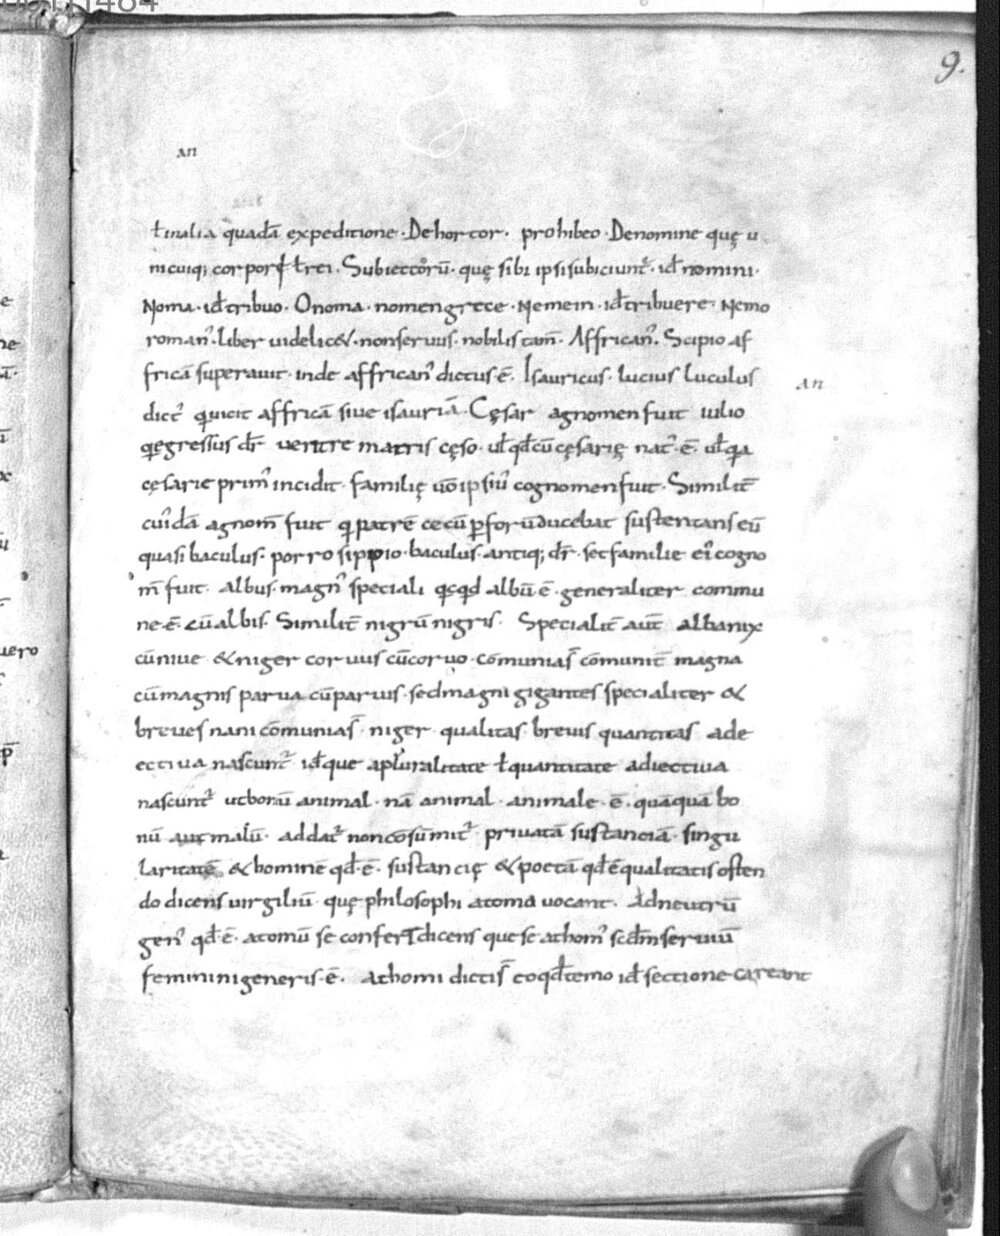 9.
an
ł inalia quadā expeditione · Dehortor · prohibeo · Denomine quę u
nicuiq; corpori ł rei · Subiectorū · quę sibi ipsi subiciunt᷑ · id nomini ·
Noma · id tribuo · Onoma · nomen grece · Nemein · id tribuere · Nemo
roman᾿ · liber uidelic& · non seruus · nobilis tam̄ · Affrican᾿ · Scipio af
fricā superauit · inde affrican᾿ dictus ē · Isauricus · lucius luculus
an
dict᾿ qui uicit affricā siue isauriā · Cęsar agnomen fuit iulio
q egressus dr̄ uentre matris cęso · ul qd cū cęsarię nat᾿ · ē · ul qa
cęsarie prim᾿ incidit · familię uō ipsiu᾿ cognomen fuit · Similit̄
cui᾿dā agnom̄ fuit q patrē cecū p forū ducebat sustentans eū
quasi baculus · porro sippio · baculus · antiq; dr̄ · set familie ei᾿ cogno
m̄ fuit · albus · magn᾿ speciali qcqd albū ē · generaliter commu
ne · ē · cū albis · Similit̄ nigrū nigris · Specialit̄ aut̄ albanix
cū niue & niger coruus cū coruo · cōmunias̄ cōmunit̄ magna
cū magnis parua cū paruis · sed magni gigantes specialiter &
breues nani cōmunias̄ · niger · qualitas · breuis quantitas ade
ectiua nascunt᷑ id que a pluralitate ł quantitate adiectiua
nascunt᷑ ut bonū animal · nā animal · animale · ē · quāquā bo
nū aut malū · addat᷑ non cōsūmit᷑ priuatā sustanciā · singu
laritatē & hominē qd · ē · sustancię & poetā qd ē qualitatis osten
do dicens uirgiliū · quę philosophi atoma uocant · Ad neutrū
gen᾿ qd · ē · atomū se confert dicens que se athom᾿ scdm seruiū
feminini generis · ē · athomi dictis̄ eo qd temo id sectione careant